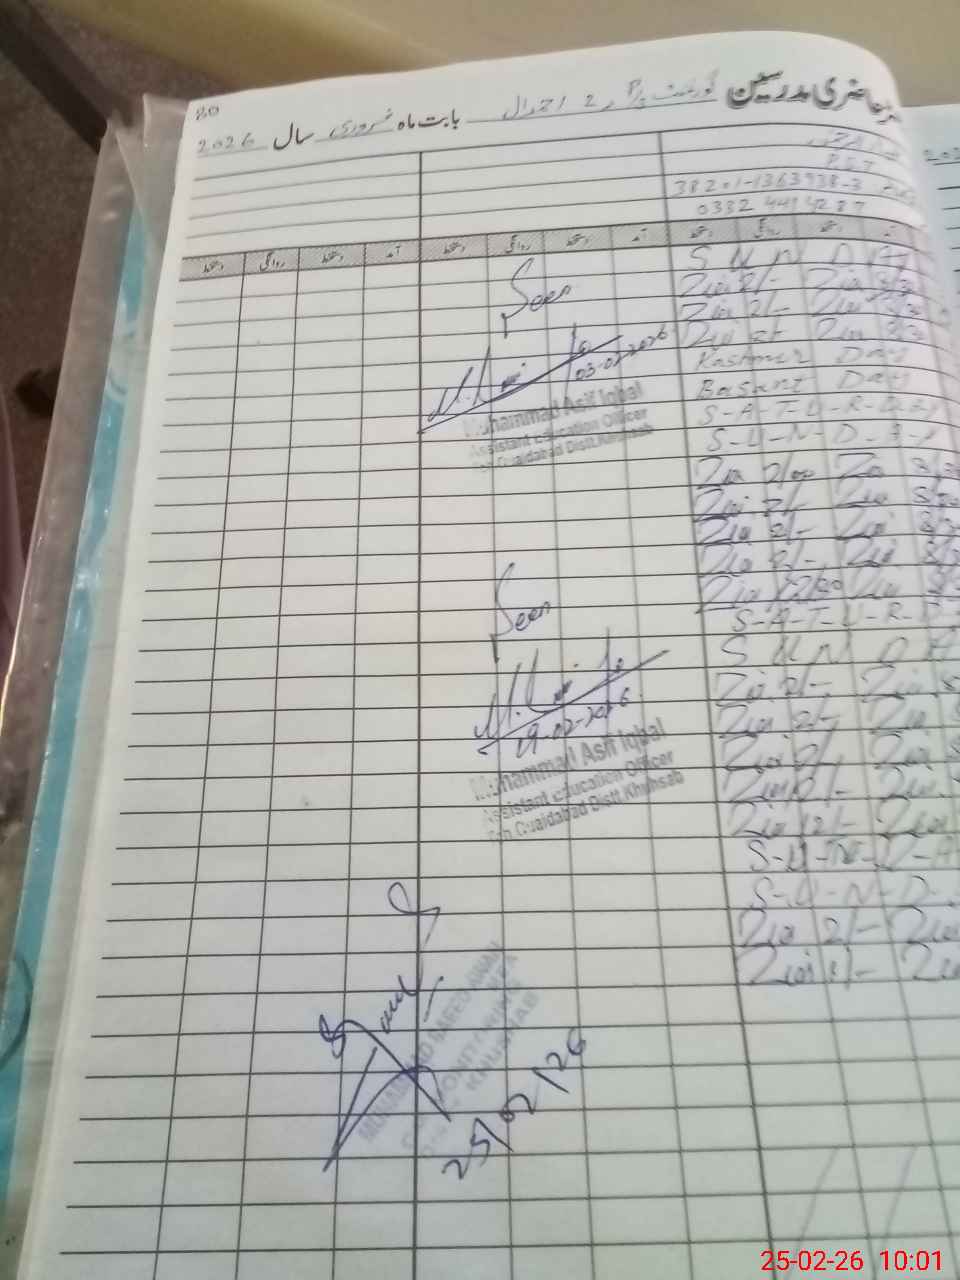 80
حاضری مدرسین گورنمنٹ پرا 2 احمدال بابت ماہ فروری سال 2026
P.S.T
38201-1363938-3
0332 4414287
آمد دستخط روانگی دستخط آمد دستخط روانگی دستخط
S U N D A Y
Zia 2/- Zia 8/30
Zia 2/- Zia 8/30
Zia 2/- Zia 8/30
Kashmir Day
Basant Day
S-A-T-U-R-D-a-y
S-U-N-D-A-Y
Zia 2/00 Zia 8/30
Zia 2/- Zia 8/30
Zia 2/- Zia 8/3
Zia 2/- Zia 8/3
Zia 12/30 Zia 8/3
S-A-T-U-R-D
S U N D A
Zia 2/- Zia 8
Zia 2/- Zia 8
Zia 2/- Zia 8
Zia 2/- Zia
Zia 12/- Zia
S-U-N-D-A
S-U-N-D-
Zia 2/- Zia
Zia 2/- Zia
Seen
03-02-2026
Muhammad Asif Iqbal
Assistant Education Officer
Teh Quaidabad Distt.Khushab
Seen
19-02-2026
Muhammad Asif Iqbal
Assistant Education Officer
Teh Quaidabad Distt.Khuhsab
MUHAMMAD SAEED AWAN
KHUSHAB
25/02/26
25-02-26 10:01